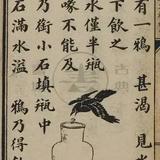 有一鴉 甚渴 見
下飲之
水僅半瓶
喙不能及
乃銜小石填瓶中
石滿水溢 鴉乃得